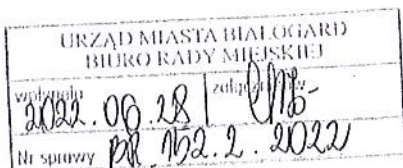 URZĄD MIASTA BIAŁOGARD
BIURO RADY MIEJSKIEJ
wpłynęło
2022.06.28
Nr sprawy BR.152.2.2022